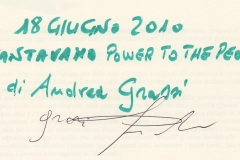 18 GIUGNO 2010
CANTAVAMO POWER TO THE PEO
di Andrea Grassi